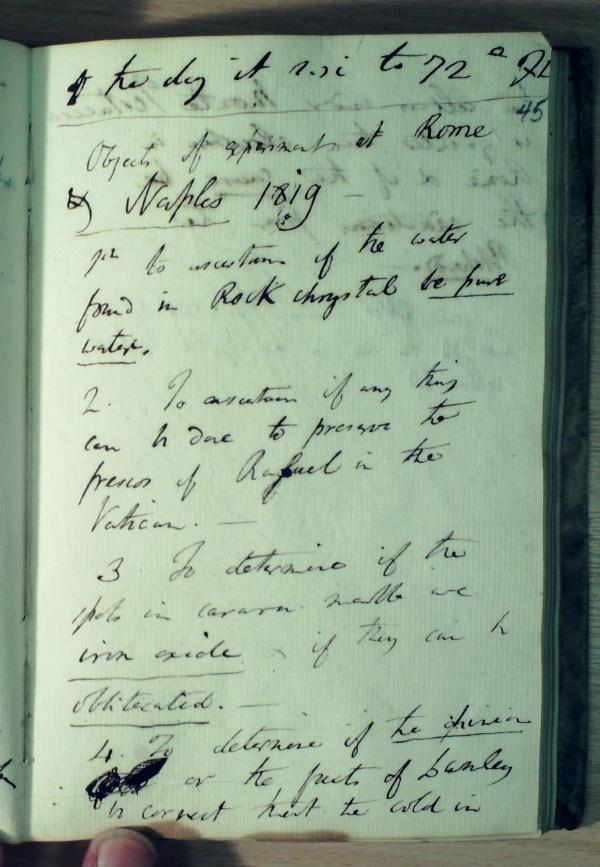 of the day it rose to 72°
45
Objects of experiment at Rome
& Naples 1819 —
1st to ascertain if the water
found in Rock chrystal be pure
water.
2. To ascertain if any thing
can be done to preserve the
frescos of Rafael in the
Vatican. —
3 To determine if the
spots in carara marble are
iron oxide & if they can be
obliterated. —
4. To determine if the opinion
or the facts of
be correct that the cold in